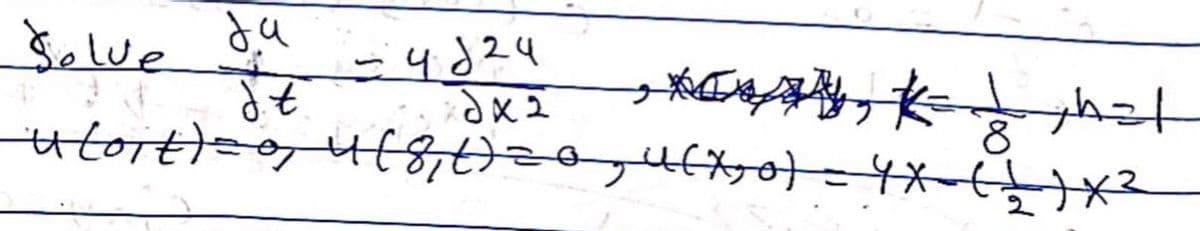 Solve ∂u/∂t = 4 ∂2u/∂x2 , k = 1/8 , h = 1
u(0,t) = 0, u(8,t) = 0, u(x,0) = 4x - (1/2) x2